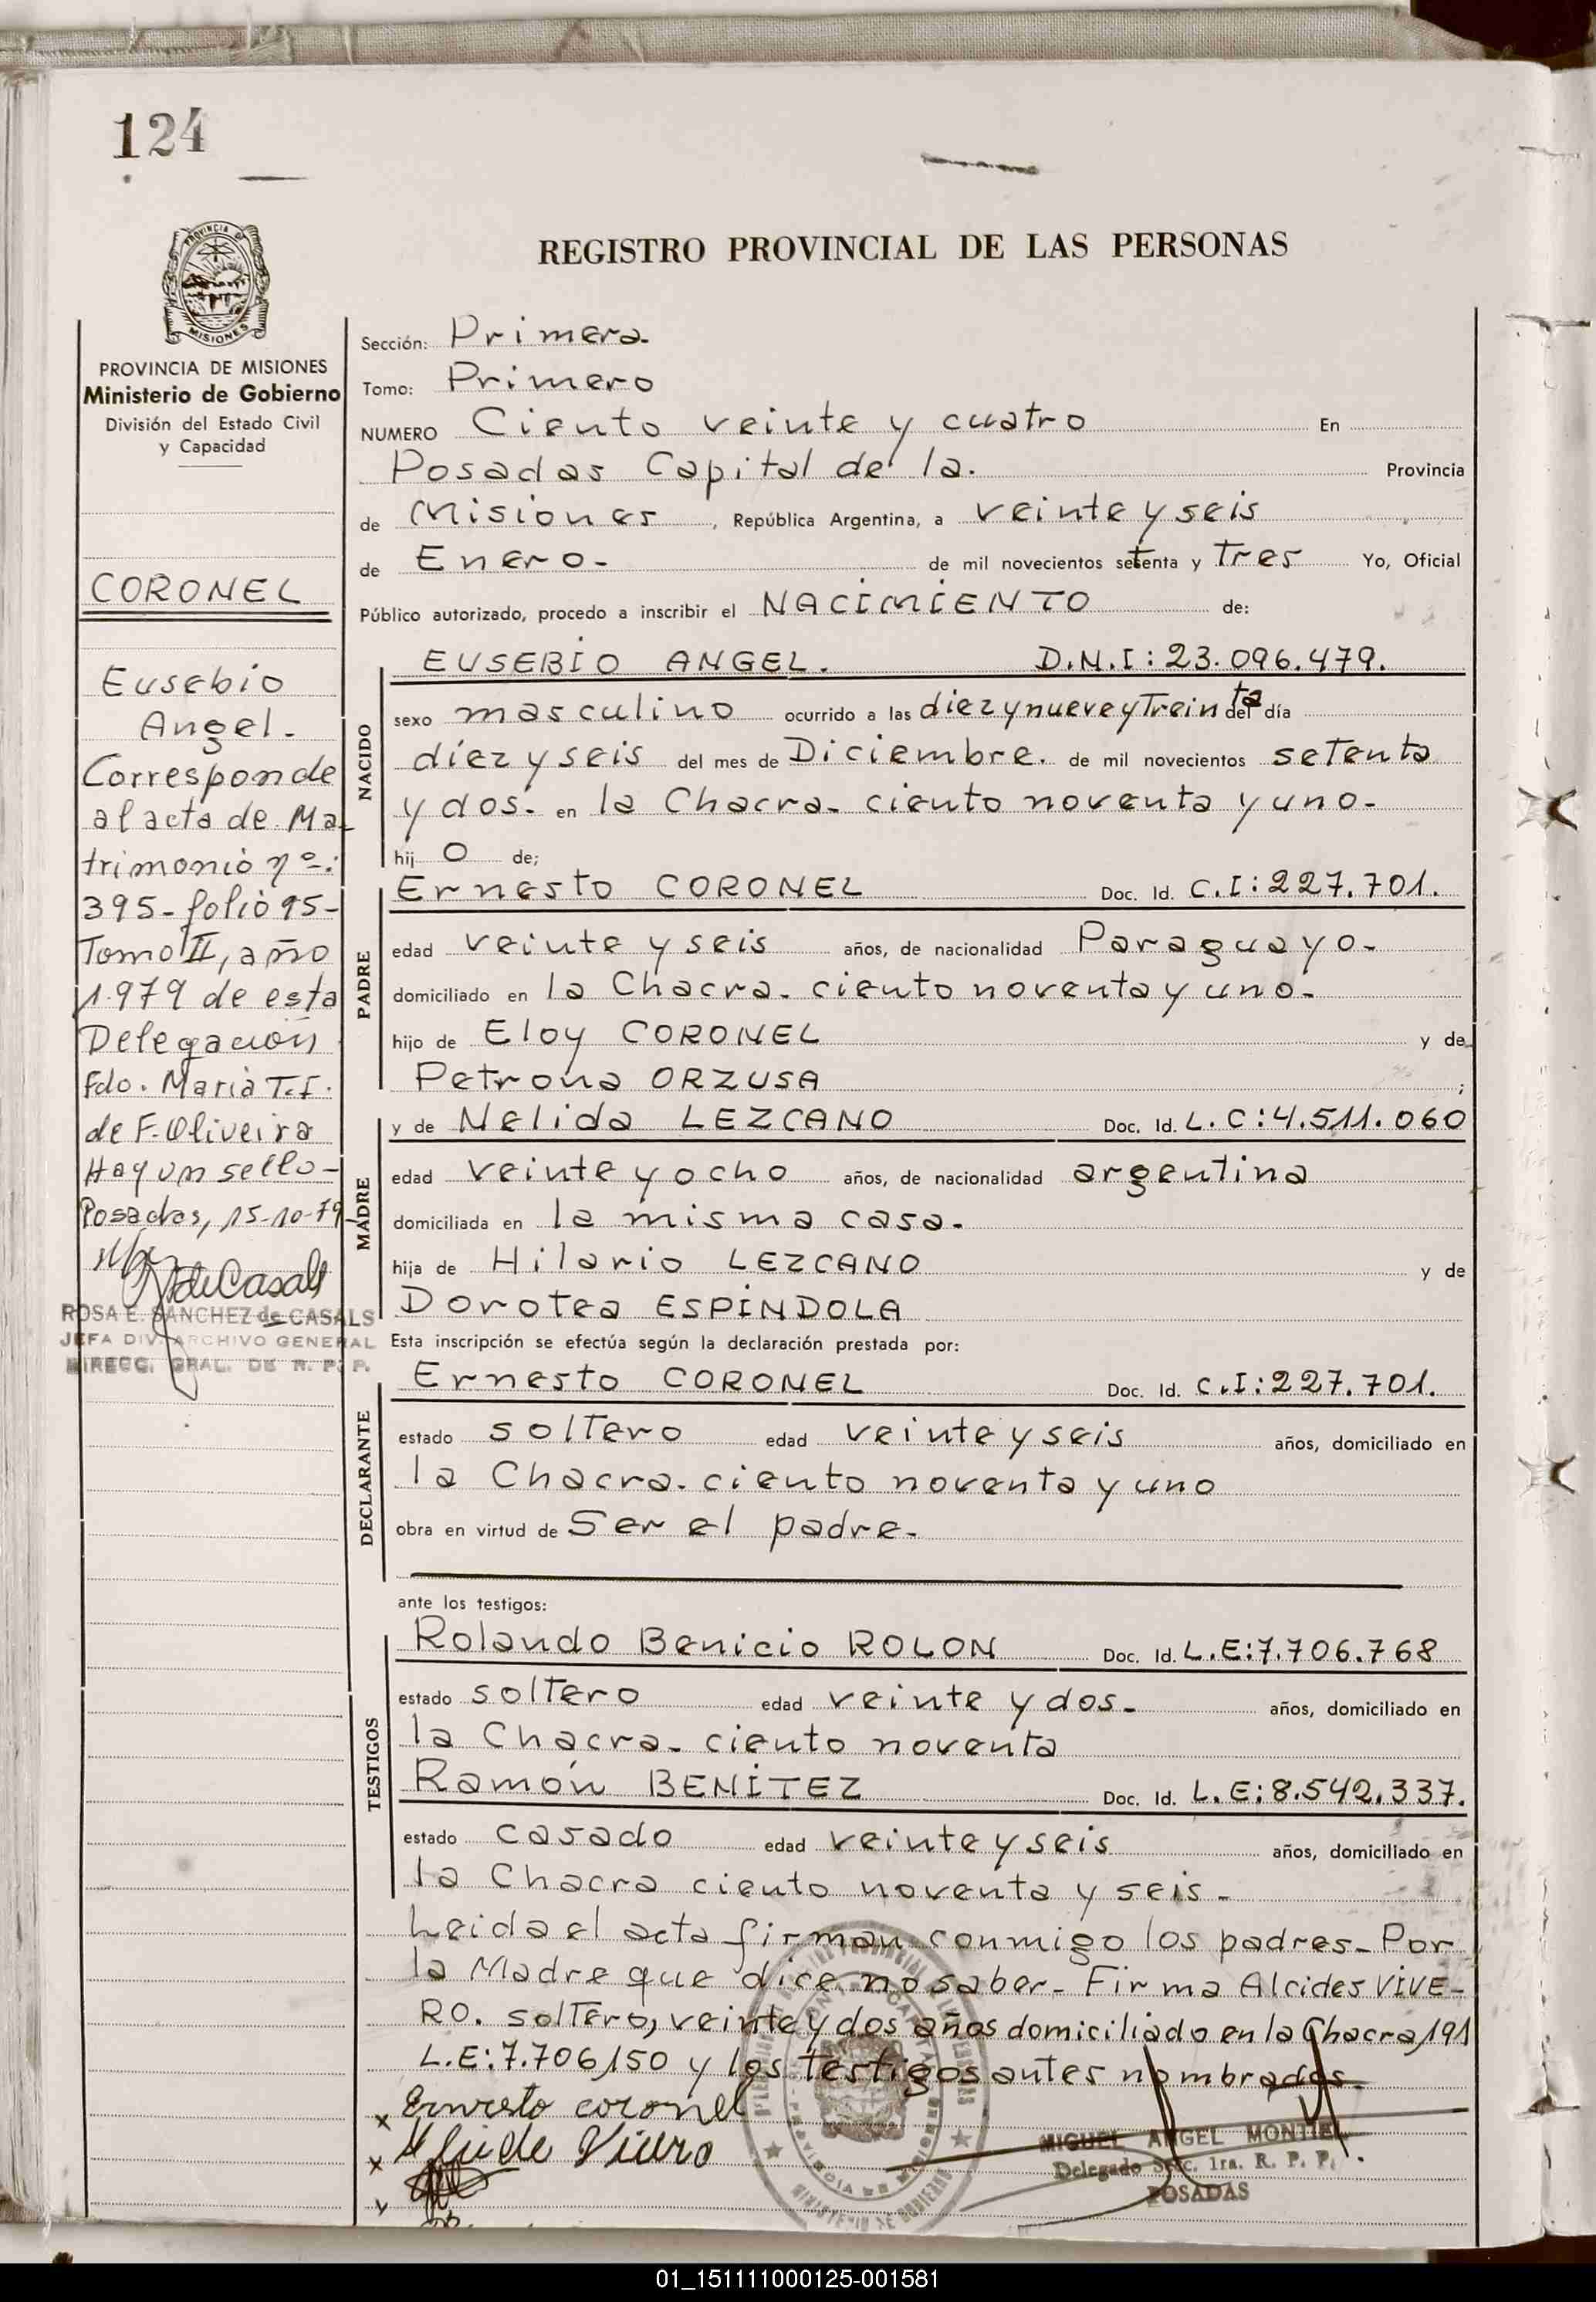 124
REGISTRO PROVINCIAL DE LAS PERSONAS
PROVINCIA DE MISIONES
Ministerio de Gobierno
División del Estado Civil
y Capacidad
CORONEL
Eusebio
Angel.
Corresponde
al acta de Ma-
trimonio nº:
395-folio 95-
Tomo II, año
1.979 de esta
Delegación
Fdo. Maria T.I.
de F. Oliveira
Hay un sello-
Posadas, 15-10-79-
ROSA E. SANCHEZ de CASALS
JEFA DIV. ARCHIVO GENERAL
DIRECC. GRAL. DE R. P. P.
Sección: Primera-
Tomo: Primero
NUMERO Ciento veinte y cuatro En
Posadas Capital de la. Provincia
de Misiones, República Argentina, a veinte y seis
de Enero- de mil novecientos setenta y Tres Yo, Oficial
Público autorizado, procedo a inscribir el NACIMIENTO de:
NACIDO
EUSEBIO ANGEL. D.N.I: 23.096.479.
sexo masculino ocurrido a las diez y nueve y Treinta del día
diez y seis del mes de Diciembre. de mil novecientos setenta
y dos- en la Chacra- ciento noventa y uno-
hij o de;
PADRE
Ernesto CORONEL Doc. Id. C.I: 227.701.
edad veinte y seis años, de nacionalidad Paraguayo-
domiciliado en la Chacra- ciento noventa y uno-
hijo de Eloy CORONEL y de
Petrona ORZUSA ;
MADRE
y de Nelida LEZCANO Doc. Id. L.C: 4.511.060
edad veinte y ocho años, de nacionalidad argentina
domiciliada en la misma casa-
hija de Hilario LEZCANO y de
Dorotea ESPINDOLA
Esta inscripción se efectúa según la declaración prestada por:
DECLARANTE
Ernesto CORONEL Doc. Id. C.I: 227.701.
estado soltero edad veinte y seis años, domiciliado en
la Chacra- ciento noventa y uno
obra en virtud de Ser el padre-
ante los testigos:
TESTIGOS
Rolando Benicio ROLON Doc. Id. L.E: 7.706.768
estado soltero edad veinte y dos- años, domiciliado en
la Chacra- ciento noventa
Ramón BENITEZ Doc. Id. L.E: 8.542.337.
estado casado edad veinte y seis años, domiciliado en
la Chacra ciento noventa y seis-
Leida el acta firman conmigo los padres- Por
la Madre que dice no saber- Firma Alcides VIVE-
RO. soltero, veinte y dos años domiciliado en la Chacra, 191
L.E: 7.706,150 y los Testigos antes nombrados-
Ernesto coronel
MIGUEL ANGEL MONTIEL
Delegado Secc. 1ra. R. P. P.
POSADAS
01_151111000125-001581